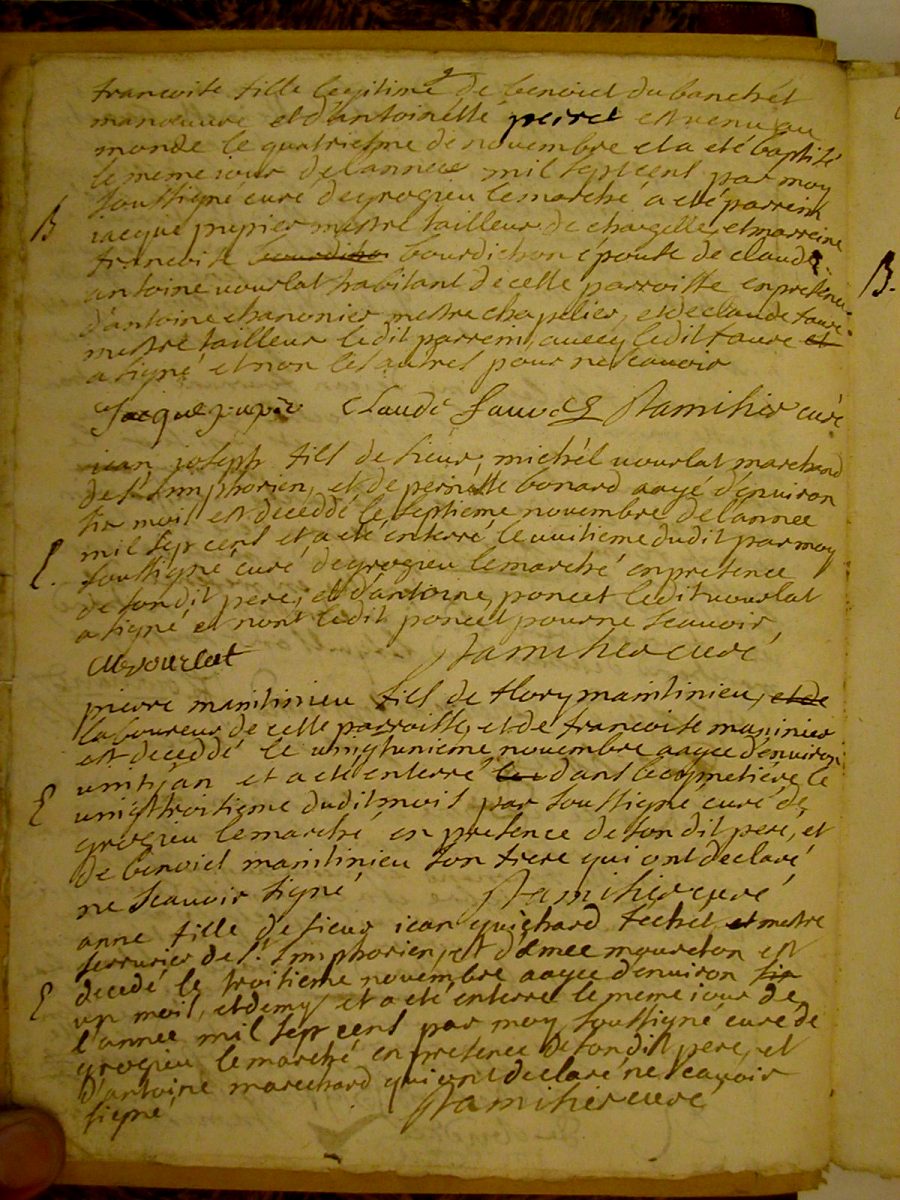 francoise fille legitime de benoict du banchet
manoeuvre et d'antoinette peiret est venu au
monde le quatriesme de novembre et a eté baptisé
le meme iour de l'anneé mil sept cens par moy
soussigné curé de grezieu le marché a eté parrein
B iacque pupier mestre tailleur de chazelle, et marreine
francoise bourdichon épouse de claude
antoine vourlat habitant de cette parroisse en presence
d'antoine chanonier mestre chapelier, et de claude faure
mestre tailleur ledit parrein, avecq ledit faure et
a signé et non les autres pour ne scavoir
Jacque pupié claude fauvre curé
B.
iean joseph fils de sieur michél vourlat marchand
de st simphorien, et de pernette bonard aagé d'environ
six mois est decedde le septieme novembre de l'annee
mil sept cens et a eté enterré le vuitieme dudit par moy
soussigné curé de grezieu le marché en presence
de son dit pere, et d'antoine poncet ledit vourlat
a signé et nont ledit poncet pour ne scavoir
vourlat curé
pierre maintinieu fils de flory maintinieu, et de
laboureur de cette parroisse, et de francoise
est deceddé le vingtunieme novembre aagee d'environ
an et a eté enterré dans le cymetiére le
vingttroisieme dudit mois par soussigné curé de
grezieu le marché en presence de son dit pere, et
de benoict maintinieu son frere qui ont declaré
ne scavoir signé curé
anne fille de sieur iean guichard et mestre
serrurier de st simphorien, et d'emee moureton est
decedé le troisieme novembre aagee d'environ six
un mois, et demy et a eté enterré le meme iour de
l'annee mil sept cens par moy soussigné curé de
grezieu le marché en presence de son dit pere, et
d'antoine marechard qui ont declaré ne scavoir
signé curé